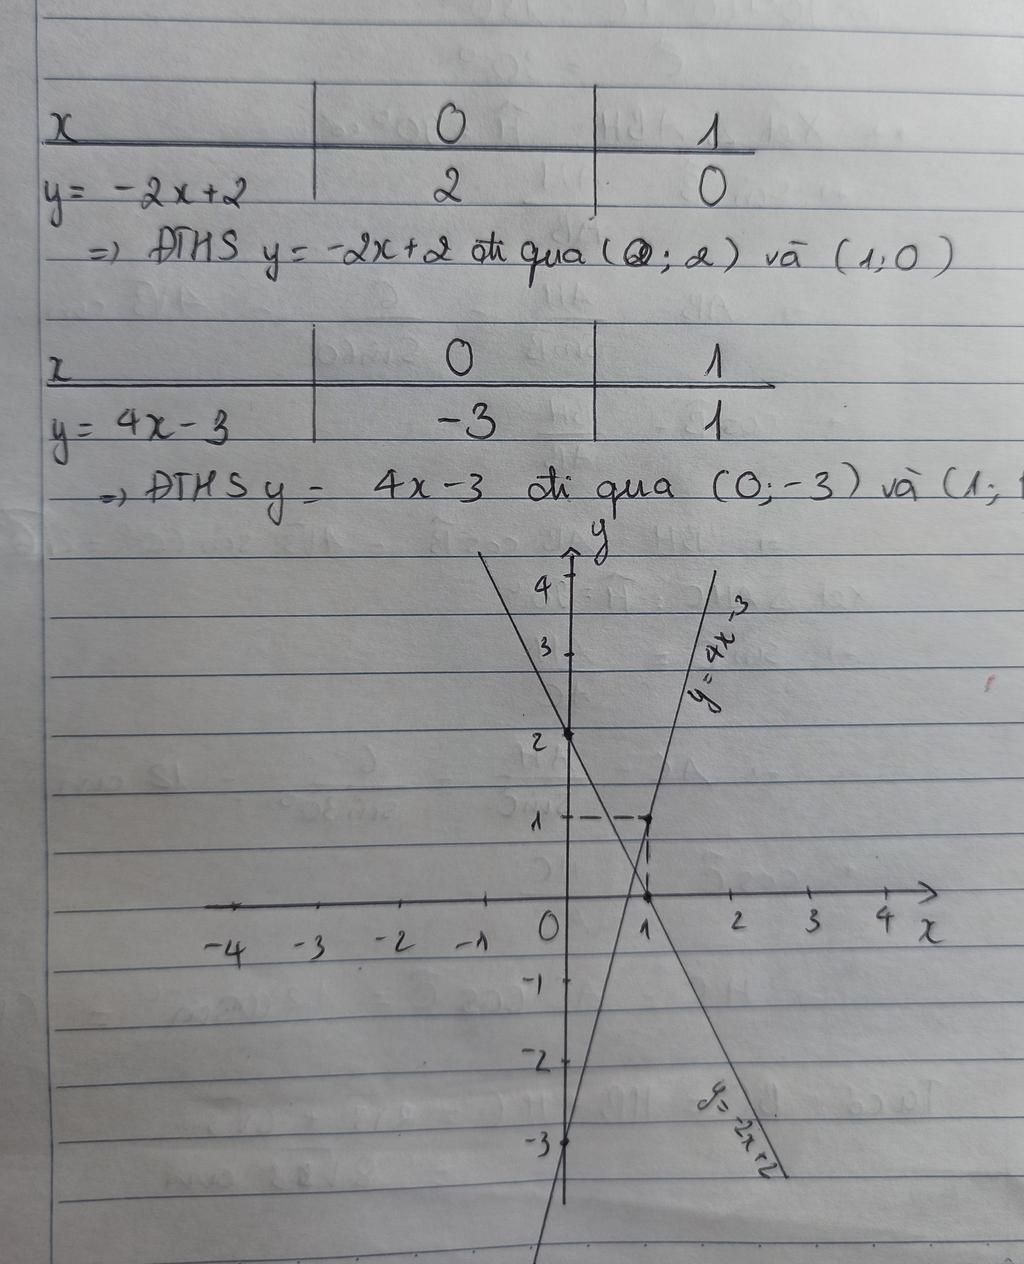 x 0 1
y= -2x+2 2 0
=> ĐTHS y= -2x+2 đi qua (0; 2) và (1;0)
x 0 1
y= 4x-3 -3 1
=> ĐTHS y= 4x-3 đi qua (0;-3) và (1;
y
4
y=4x-3
3
2
1
-4 -3 -2 -1 0 1 2 3 4 x
-1
-2
y=-2x+2
-3